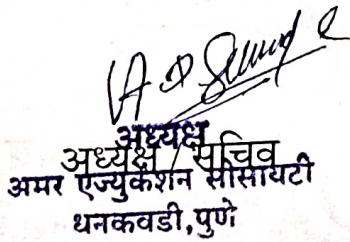 अध्यक्ष
अध्यक्ष / सचिव
अमर एज्युकेशन सोसायटी
धनकवडी, पुणे